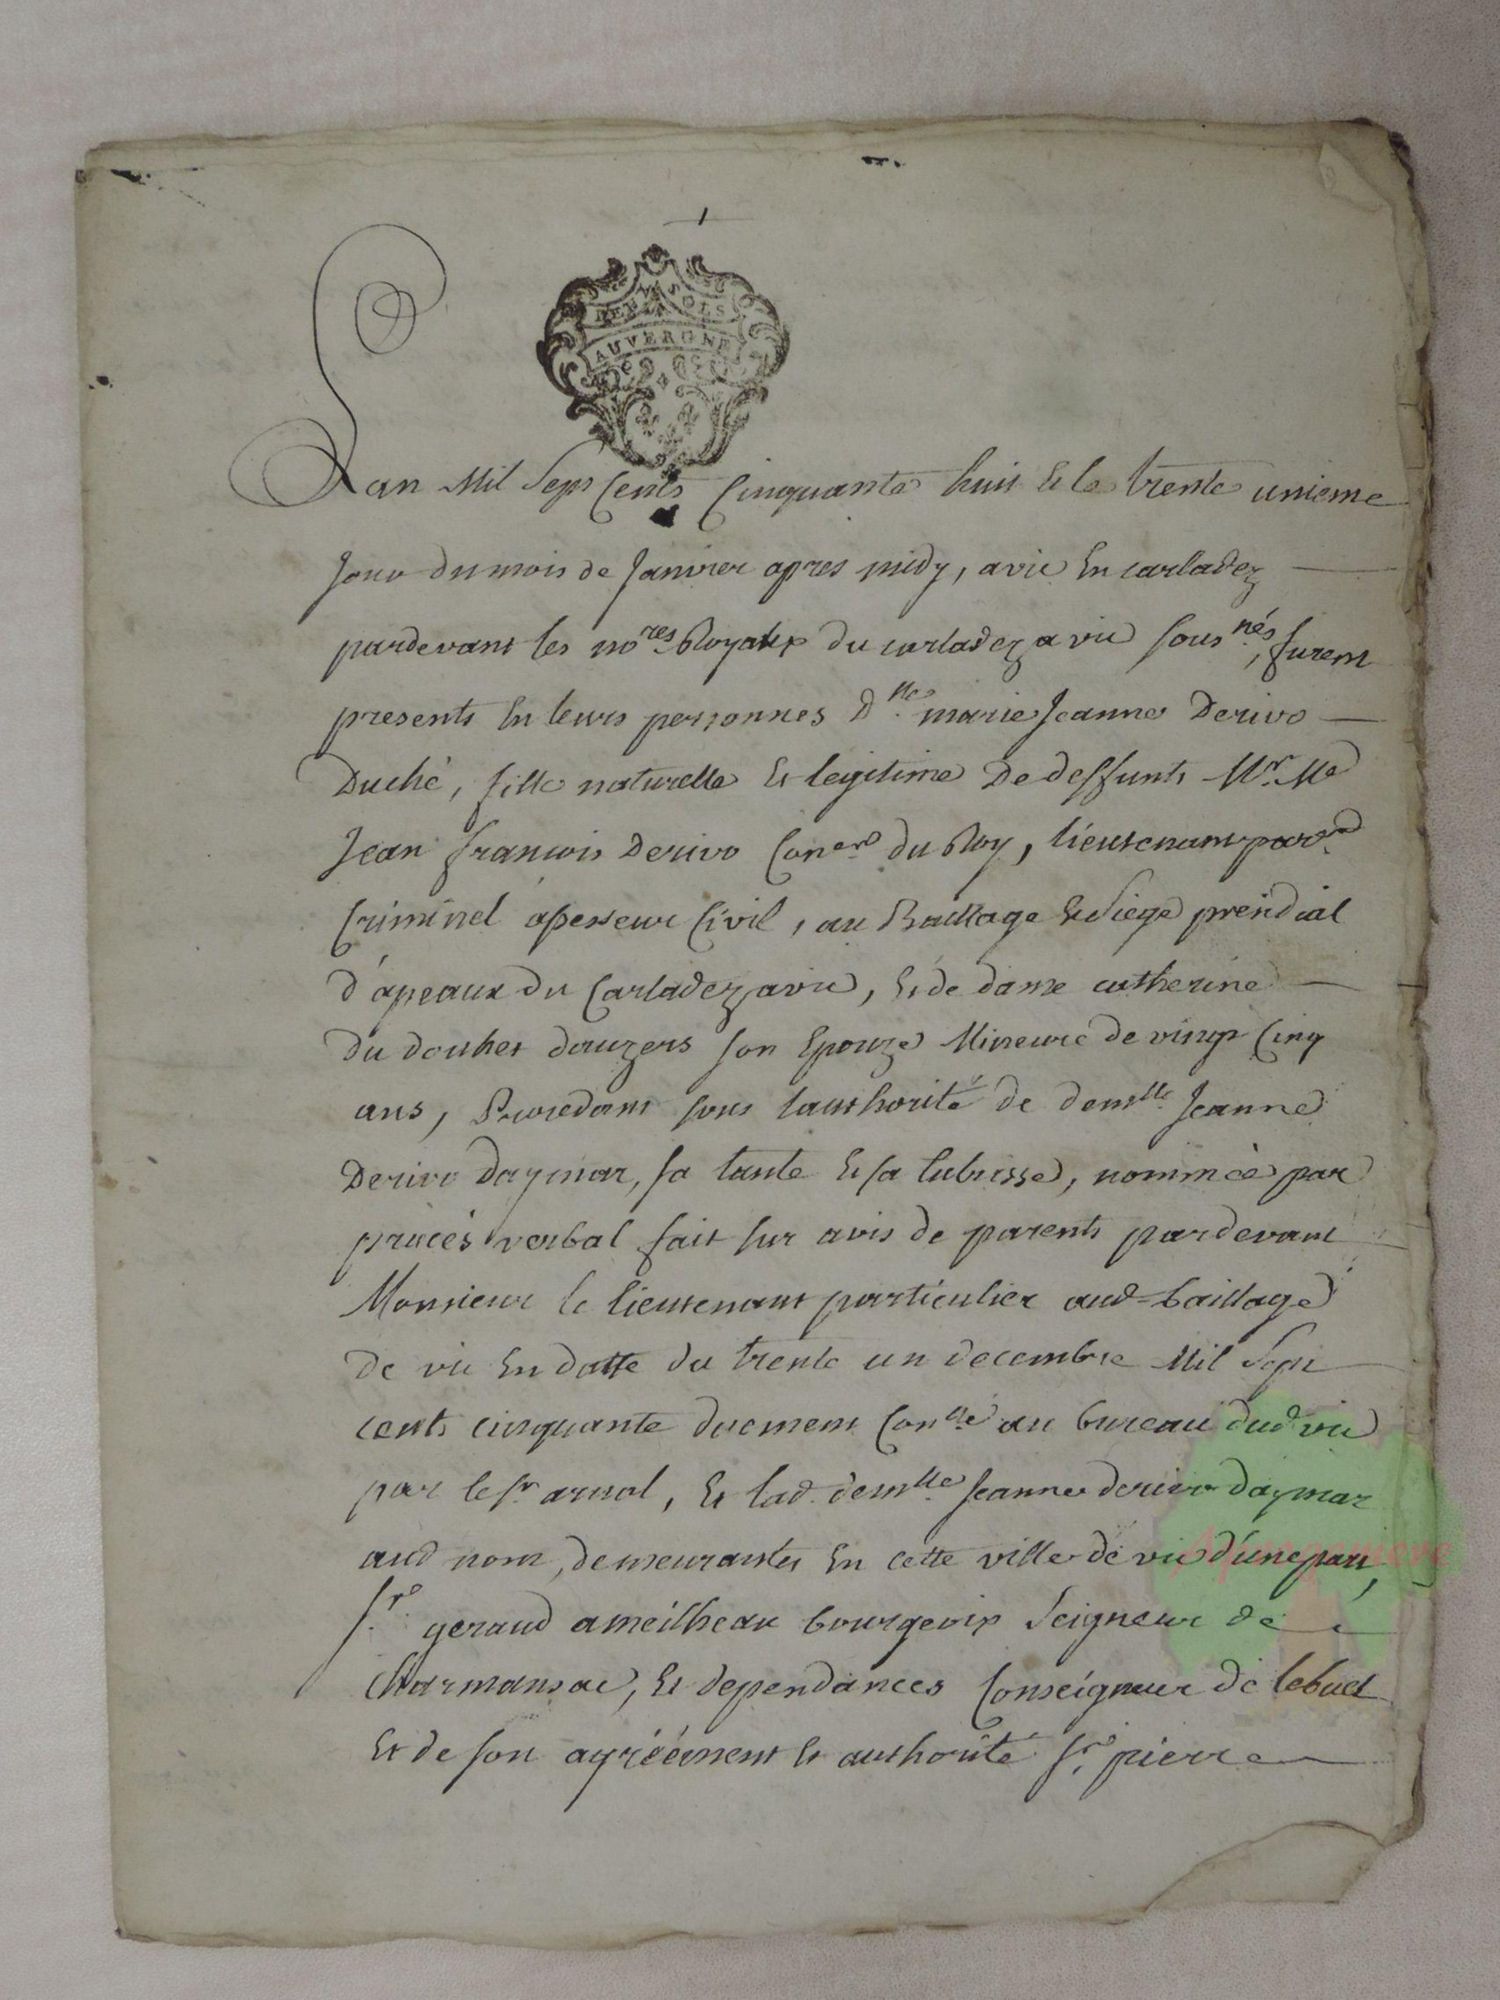 1
DEUX SOLS
AUVERGNE
Lan Mil Sept Cents Cinquante huit & le trente unieme
Jour du mois de Janvier apres midy, a vic En carladez
pardevant les no.res Royaux du carladez a vic sous.nés, furent
presents En leurs personnes D.lle marie Jeanne Derivo
Duché, fille naturelle & legitime De deffunts Mr. Me
Jean françois Derivo Con.er du Roy, lieutenant par.er
Criminel assesseur Civil, au Baillage & siege presidial
d'apeaux du Carladez a vic, & de dame catherine
du douhet dauzers son Epouze Mineure de vingt Cinq
ans, Procedant sous lauthorité de dem.lle Jeanne
Derivo daymar, sa tante & sa tutrisse, nommée par
procès verbal fait sur avis de parents pardevant
Monsieur le lieutenant particulier aud. baillage
de vic En datte du trente un decembre Mil Sept
cents cinquante duement Con.llé au bureau dud. vic
par le sr. arnal, & lad. dem.lle Jeanne derivo daymar
aud. nom, demeurantes En cette ville de vic d'une part,
Sr. geraud ameilheau bourgeoix Seigneur de
Charmansac, & dependances Conseigneur de
& de son agréément & authorité Sr. pierre